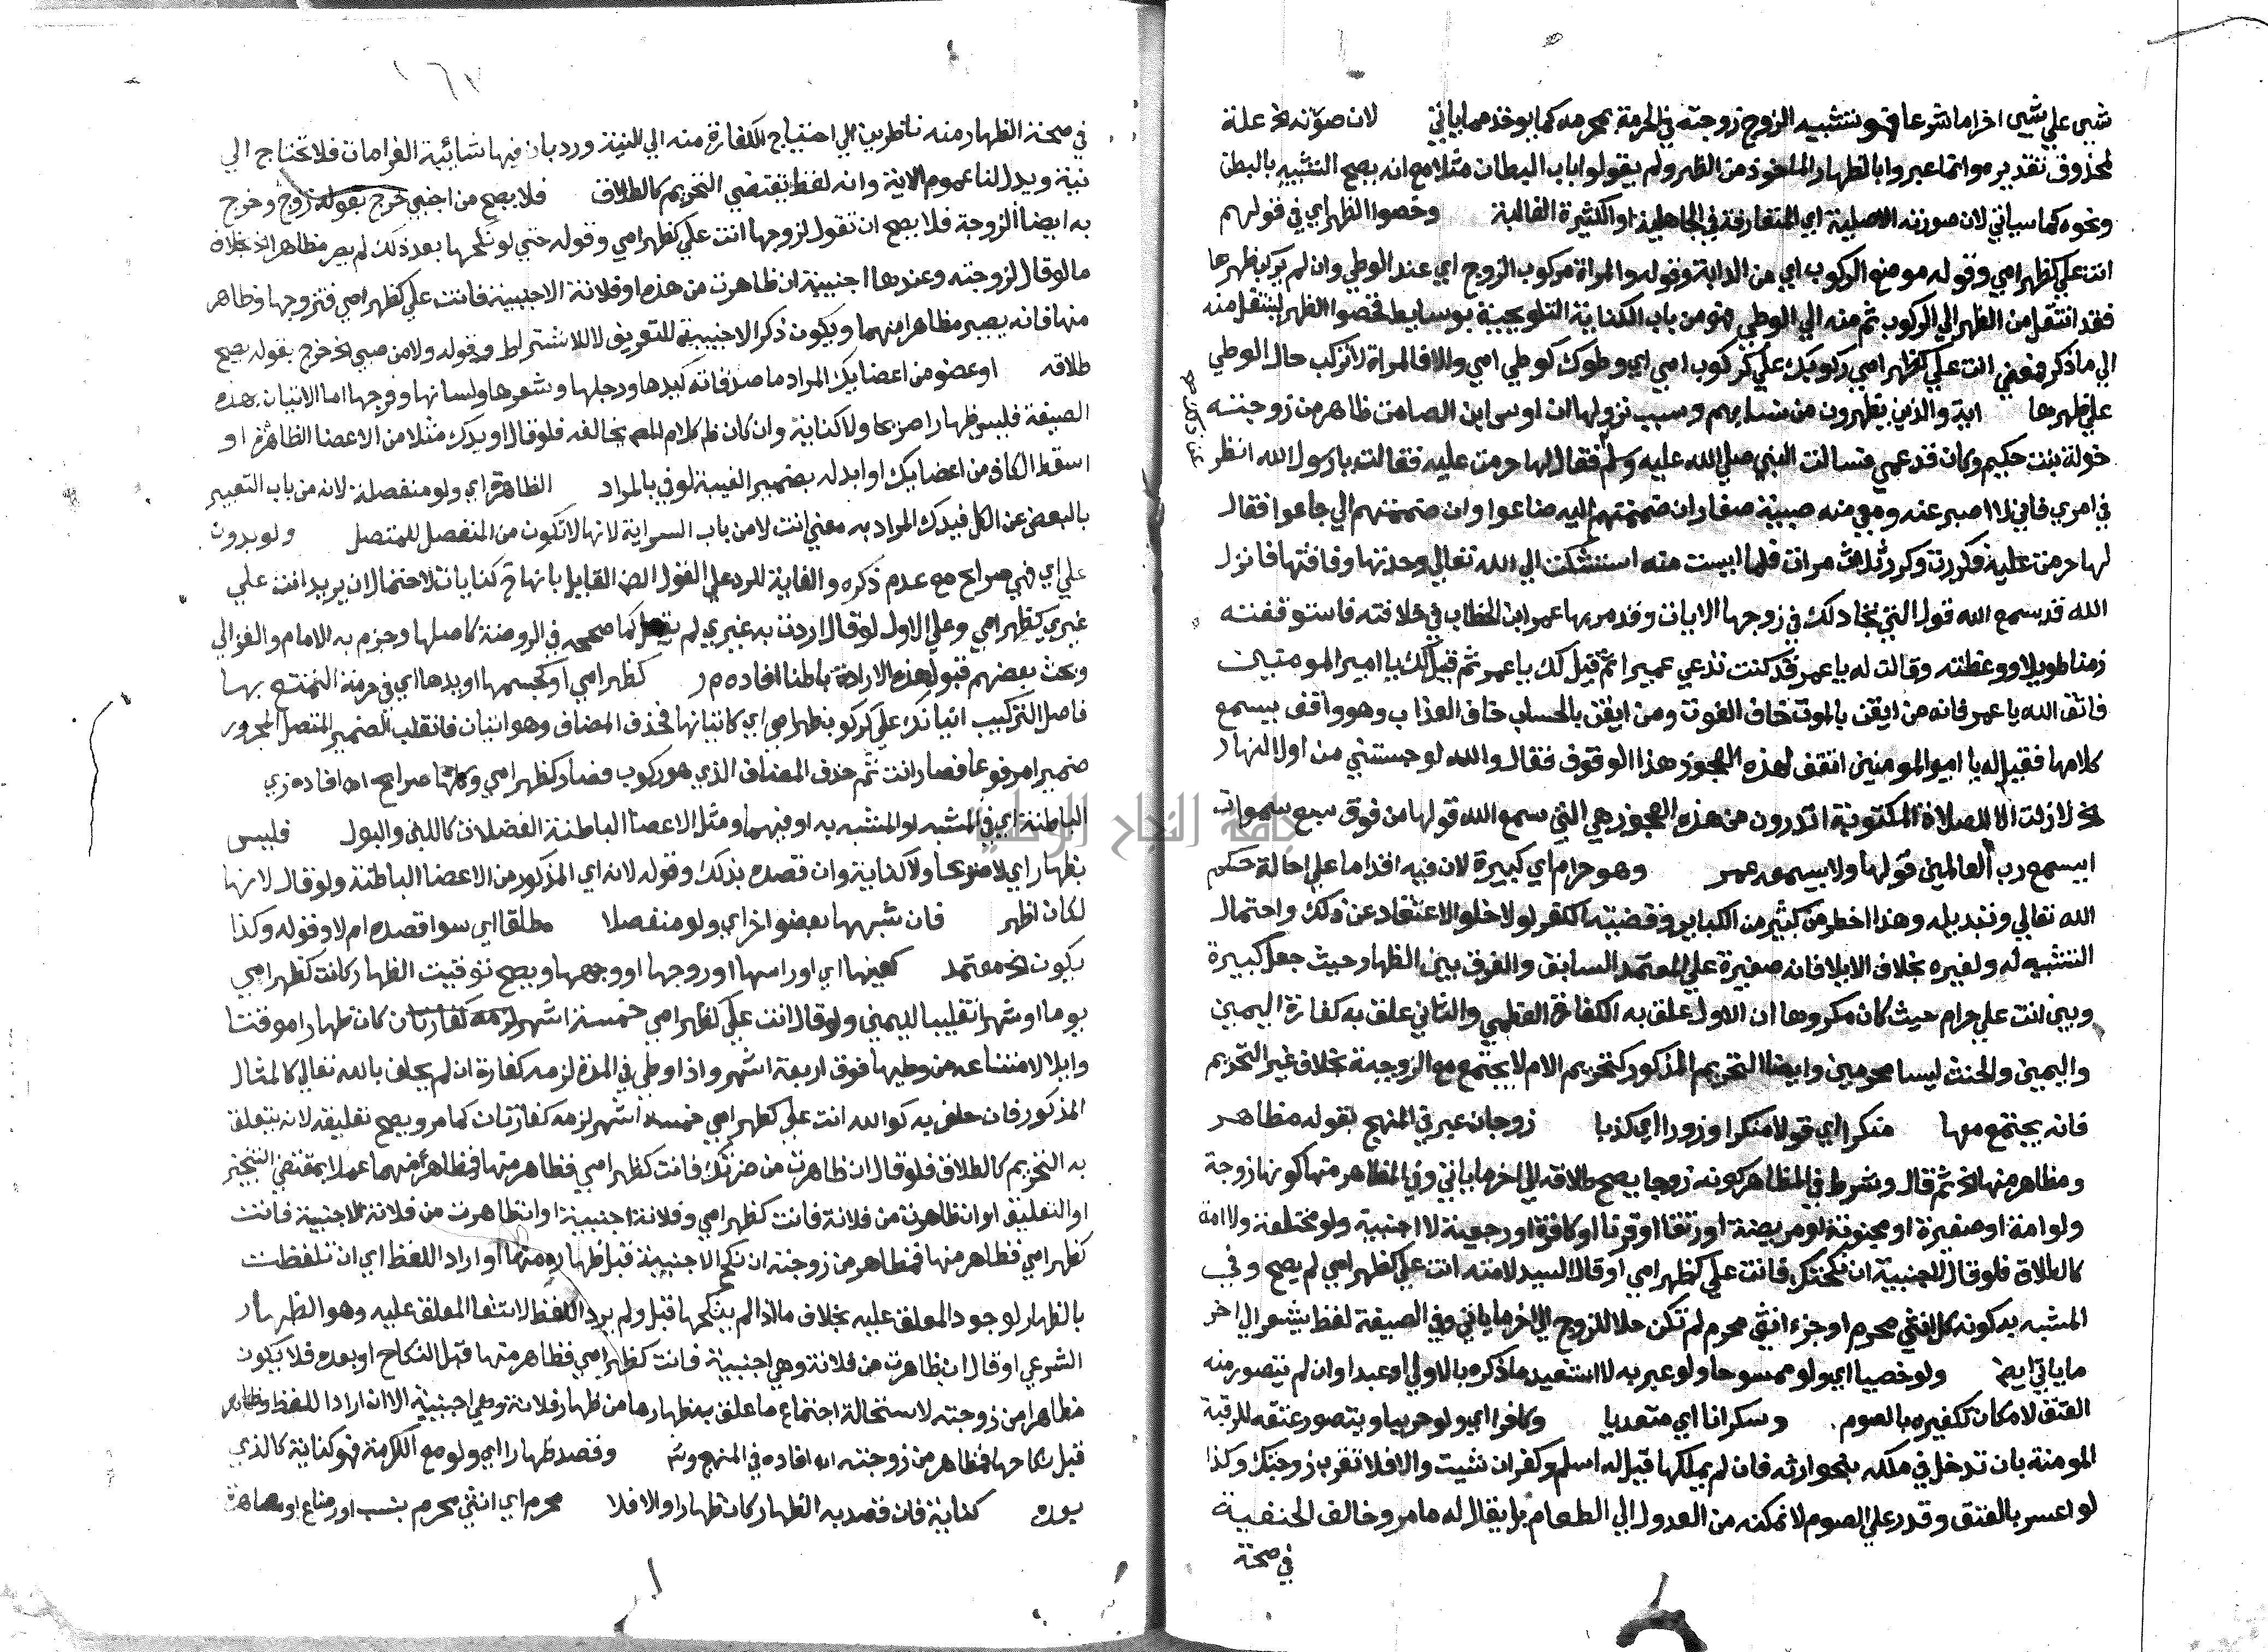 شي علي شي اخر اما شرعا فهو تشبيه الزوج زوجته في الحرمة بمحرمه كما يوخذ مما ياتي لان صورته الخ علة
لمحذوف تقديره وانما عبروا بالظهار الماخوذ من الظهر ولم يقولوا باب البطان مثلا مع انه يصح التشبيه بالبطن
ونحوه كما سياتي لان صورته الاصلية اي المتعارفة في الجاهلية او الكثيرة الغالبة وخصوا الظهر اي في قولهم
انت علي كظهر امي وقوله موضع الركوب اي من الدابة وقوله والمراة مركوب الزوج اي عند الوطي وان لم يركب ظهرها
فقد انتقل من الظهر الي الركوب ثم منه الي الوطي فهو من باب الكناية التلويحية بوسايط فخصوا الظهر لينتقل منه
الي ما ذكر فمعني انت علي كظهر امي ركوبك علي كركوب امي اي وطوك كوطي امي والا فالمراة لا تركب حال الوطي
علي ظهرها اية والذين يظهرون من نسايهم وسبب نزولها ان اوس ابن الصامت ظاهر من زوجته
خولة بنت حكيم وكان قد عمي فسالت النبي صلي الله عليه وسلم فقال لها حرمت عليه فقالت يا رسول الله انظر
في امري فاني لا اصبر عنه ومعي منه صبية صغار ان ضممتهم اليه ضاعوا وان ضممتهم الي جاعوا فقال
لها حرمت عليه فكررت وكرر ثلاث مرات فلما ايست منه استشكت الي الله تعالي وحدتها وفاقتها فانزل
الله قد سمع الله قول التي تجادلك في زوجها الايات وقد مر بها عمر ابن الخطاب في خلافته فاستوقفته
زمنا طويلا ووعظته وقالت له يا عمر قد كنت تدعي عميرا ثم قيل لك يا عمر ثم قيل لك يا امير المومنين
فاتق الله يا عمر فانه من ايقن بالموت خاف الفوت ومن ايقن بالحساب خاف العذاب وهو واقف يسمع
كلامها فقيل له يا امير المومنين اتقف لهذه العجوز هذا الوقوف فقال والله لو حبستني من اول النهار
الخ لا زلت الا للصلاة المكتوبة اتدرون من هذه العجوز هي التي سمع الله قولها من فوق سبع سموات
ايسمع رب العالمين قولها ولا يسمعه عمر وهو حرام اي كبيرة لان فيه اقداما علي احالة حكم
الله تعالي وتبديله وهذا اخطر من كثير من الكباير وقضيته الكفر لولا خلو الاعتقاد عن ذلك واحتمال
التشبيه له ولغيره بخلاف الايلا فانه صغيرة علي المعتمد السابق والفرق بين الظهار حيث جعل كبيرة
وبين انت علي حرام حيث كان مكروها ان الاول علق به الكفارة العظمي والثاني علق به كفارة اليمين
واليمين والحنث ليسا محرمين وايضا التحريم المذكور كتحريم الام لا يجتمع مع الزوجية بخلاف غير التحريم
فانه يجتمع معها منكرا اي قولا منكرا وزورا اي كذبا زوجان عبر في المنهج بقوله مظاهر
ومظاهر منها الخ ثم قال وشرط في المظاهر كونه زوجا يصح طلاقه الي اخر ما ياتي وفي المظاهر منها كونها زوجة
ولو امة او صغيرة او مجنونة او مريضة او رتقا او قرنا او كافرة او رجعية لا اجنبية ولو مختلعة ولا امة
كالطلاق فلو قال لاجنبية ان نكحتك فانت علي كظهر امي او قال السيد لامته انت علي كظهر امي لم يصح وفي
المشبه به كونه كل انثي محرم او جزء انثي محرم لم تكن حلا للزوج الي اخر ما ياتي وفي الصيغة لفظ يشعر الي اخر
ما ياتي ايضا ولو خصيا اي ولو ممسوحا ولو عبر به لا استفيد ما ذكره بالاولي او عبدا وان لم يتصور منه
العتق لامكان تكفيره بالصوم. وسكرانا اي متعديا وكافرا اي ولو حربيا ويتصور عتقه للرقبة
المومنة بان تدخل في ملكه بنحو ارثه فان لم يملكها قيل له اسلم وكفر ان شيت والا فلا تقرب زوجتك وكذا
لو اعسر بالعتق وقدر علي الصوم لا نمكنه من العدول الي الطعام بل يقال له ما مر وخالف الحنفية
في صحة
١٦٧
في صحة الظهار منه ناظرين الي احتياج الكفارة منه الي النية ورد بان فيها شائبة الغرامات فلا تحتاج الي
نية ويدل لنا عموم الاية وانه لفظ يقتضي التحريم كالطلاق فلا يصح من اجنبي خرج بقوله زوج وخرج
به ايضا الزوجة فلا يصح ان تقول لزوجها انت علي كظهر امي وقوله حتي لو نكحها بعد ذلك لم يصر مظاهرا بخلاف
ما لو قال لزوجته وعندها اجنبية ان ظاهرت من هذه او فلانة الاجنبية فانت علي كظهر امي فتزوجها وظاهر
منها فانه يصير مظاهرا منهما ويكون ذكر الاجنبية للتعريف لا للاشتراط وقوله ولا من صبي الخ خرج بقوله يصح
طلاقه او عضو من اعضايك المراد ماصدقاته كيدها ورجلها وشعرها ولسانها وفرجها اما الاتيان بهذه
الصيغة فليس ظهارا صريحا ولا كناية وان كان ظ كلام المص يخالفه فلو قال او يدك مثلا من الاعضا الظاهرة او
اسقط الكاف من اعضايك او ابدله بضمير الغيبة لوفي بالمراد الظاهرة اي ولو منفصلة لانه من باب التعبير
بالبعض عن الكل فيدك المراد به معني انت لا من باب السراية لانها لا تكون من المنفصل للمتصل ولو بدون
علي اي فهي صرايح مع عدم ذكره والغاية للرد علي القول القايل بانها ح كنايات لاحتمال ان يريد انت علي
غيري كظهر امي وعلي الاول لو قال اردت به غيري لم يقبل كما صححه في الروضة كاصلها وجزم به الامام والغزالي
وبحث بعضهم قبول هذه الارادة باطنا افاده م ر كظهر امي او كجسمها او يدها اي في حرمة التمتع بها
فاصل التركيب اتيانك علي كركوب ظهر امي اي كاتيانها فحذف المضاف وهو اتيان فانقلب الضمير المتصل المجرور
ضميرا مرفوعا فصار انت ثم حذف المضاف الذي هو ركوب فصار كظهر امي وكلها صرايح اه افاده زي
الباطنة اي في المشبه او المشبه به او فيهما ومثل الاعضا الباطنة الفضلات كاللبن والبول فليس
بظهار اي لا صريحا ولا كناية وان قصده بذلك وقوله لانه اي المذكور من الاعضا الباطنة ولو قال لانها
لكان اظهر فان شبهها بعضو اخر اي ولو منفصلا مطلقا اي سوا قصده ام لا وقوله وكذا
يكون الخ معتمد كعينها اي او راسها او روحها او وجهها ويصح توقيت الظهار كانت كظهر امي
يوما او شهرا تغليبا لليمين ولو قال انت علي كظهر امي خمسة اشهر لزمه كفارتان كان ظهارا موقتا
وايلا لامتناعه من وطيها فوق اربعة اشهر واذا وطي في المدة لزمه كفارة ان لم يحلف بالله تعالي كالمثال
المذكور فان حلف به كوالله انت علي كظهر امي خمسة اشهر لزمه كفارتان كما مر ويصح تعليقه لانه يتعلق
به التحريم كالطلاق فلو قال ان ظاهرت من ضرتك فانت كظهر امي فظاهر منها فمظاهر منهما عملا بمقتضي التنجيز
او التعليق او ان ظاهرت من فلانة فانت كظهر امي وفلانة اجنبية او ان ظاهرت من فلانة الاجنبية فانت
كظهر امي فظاهر منها فمظاهر من زوجته ان نكح الاجنبية قبل ظهاره منها او اراد اللفظ اي ان تلفظت
بالظهار لوجود المعلق عليه بخلاف ما اذا لم ينكحها قبل ولم يرد اللفظ لانتفا المعلق عليه وهو الظهار
الشرعي او قال ان ظاهرت من فلانة وهي اجنبية فانت كظهر امي فظاهر منها قبل النكاح او بعده فلا يكون
مظاهرا من زوجته لاستحالة اجتماع ما علق به ظهارها من ظهار فلانة وهي اجنبية الا ان اراد اللفظ وظاهر
قبل نكاحها فمظاهر من زوجته اه افاده في المنهج وش وقصد ظهارا اي ولو مع الكرمة فهو كناية كالذي
بعده كناية فان قصد به الظهار كان ظهارا والا فلا محرم اي انثي محرم بنسب او رضاع او مصاهرة
جامعة النجاح الوطنية